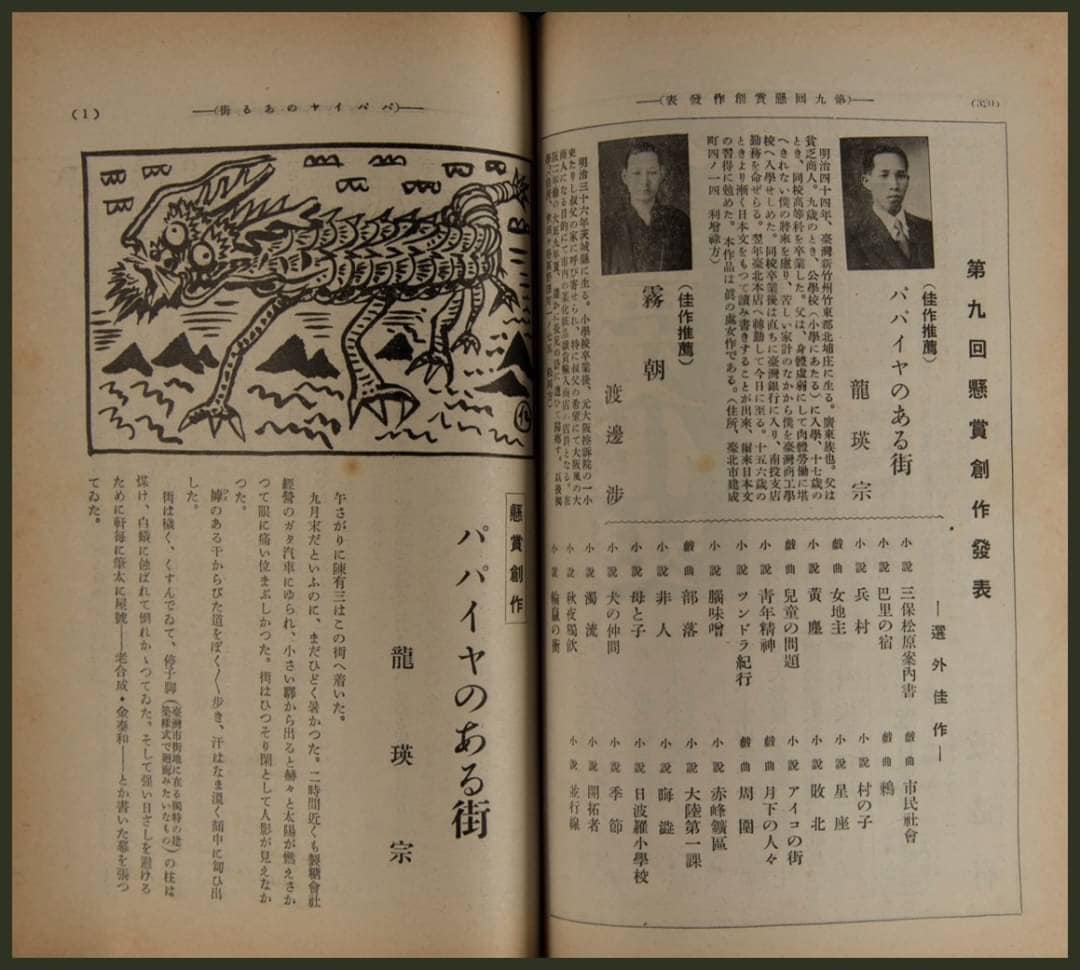 (320)
―(第九回懸賞創作發表)―
第九回懸賞創作發表
(佳作推薦)
パパイヤのある街
龍瑛宗
明治四十四年、臺灣新竹州竹東郡北埔庄に生る。廣東族也。父は
貧乏商人。九歳のとき、公學校(小學にあたる)に入學、十七歳の
とき、同校高等科を卒業した。父は、身體虚弱にして肉體勞働に堪
へきれない僕の將來を慮り、苦しい家計のなかから僕を臺灣商工學
校へ入學せしめた。同校卒業後は直ちに臺灣銀行に入り、南投支店
勤務を命ぜらる。翌年臺北本店へ轉勤して今日に至る。十五六歳の
ときより漸く日本文をもつて讀み書きすることが出來、爾來日本文
の習得に勉めた。本作品は眞の處女作である。(住所、臺北市建成
町四ノ一四 利增祿方)
(佳作推薦)
霧朝
渡邊渉
明治三十六年茨城縣に生る。小學校卒業後、元大阪控訴院の一小
吏たりし叔父の家に呼び寄せられ、特に叔父の希望にて大阪風の大
商人になる目的にて市内の某化粧品雜貨輸入商店の店員となる。在
―選外佳作―
小説 三保松原案內書
小説 巴里の宿
小説 兵村
戲曲 女地主
小説 黃塵
戲曲 兒童の問題
小説 靑年精神
小説 ツンドラ紀行
小説 腦味噌
戲曲 部落
小説 非人
小説 母と子
小説 犬の仲間
小説 濁流
小説 秋夜獨飮
小説
戲曲 市民社會
戲曲 鵜
小説 村の子
小説 星座
小説 敗北
小説 アイコの街
戲曲 月下の人々
戲曲 周圍
小説 赤峰鑛區
小説 大陸第一課
小説 晦澁
小説 日波羅小學校
小説 季節
小説 開拓者
小説 並行線
―(パパイヤのある街)―
(1)
懸賞創作
パパイヤのある街
龍瑛宗
午さがりに陳有三はこの街へ着いた。
九月末だといふのに、まだひどく暑かつた。二時間近くも製糖會社
經營のガタ汽車にゆられ、小さい驛から出ると赫々と太陽が燃えさか
つて眼に痛い位まぶしかつた。街はひつそり閑として人影が見えなか
つた。
罅のある干からびた道をぽく〳〵步き、汗はなま溫く顏中に匐ひ出
した。
街は穢く、くすんでゐて、停子脚(臺灣市街地に在る獨特の建築樣式で廻廊みたいなもの)の柱は
煤け、白蟻に蝕ばれて倒れかゝつてゐた。そして强い日ざしを避ける
ために軒每に筆太に屋號――老合成・金泰和――とか書いた幕を張つ
てゐた。